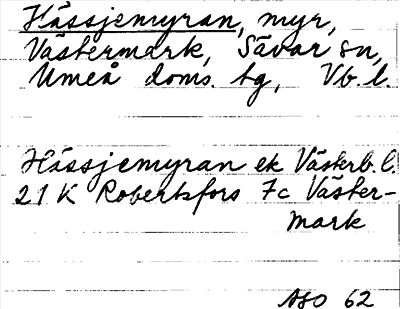 Hässjemyran, myr,
Västermark, Sävar sn,
Umeå doms. tg, Vb. l.
Hässjemyran ek Västerb. l.
21 K Robertsfors 7c Väster-
mark
ASO 62